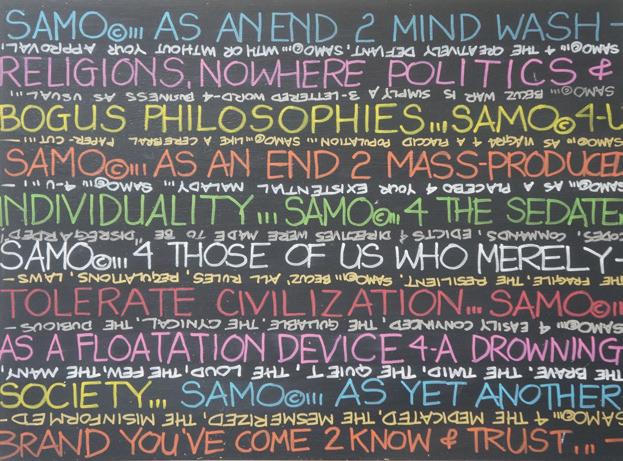 SAMO©... AS AN END 2 MIND WASH -
SAMO©... 4 THE CREATIVELY DEFIANT, SAMO©... WITH OR WITHOUT YOUR APPROVAL,..
RELIGIONS, NOWHERE POLITICS &
SAMO©... BECUZ WAR IS SIMPLY A 3-LETTERED WORD-4 BUSINESS AS USUAL...
BOGUS PHILOSOPHIES,,, SAMO© 4-U
SAMO©... AS VIAGRA 4 A FLACCID POPULATION SAMO©... LIKE A CEREBRAL PAPER-CUT...
SAMO©... AS AN END 2 MASS-PRODUCED
SAMO©... AS A PLACEBO 4 YOUR EXISTENTIAL MALADY... SAMO©... 4-U...
INDIVIDUALITY... SAMO©... 4 THE SEDATE,
CODES, COMMANDS, EDICTS & DIRECTIVES WERE MADE TO BE DISREGARDED
SAMO©... 4 THOSE OF US WHO MERELY-
THE FRAGILE, THE RESILIENT... SAMO©... BECUZ ALL RULES, REGULATIONS, LAWS,
TOLERATE CIVILIZATION... SAMO©...
SAMO©... 4 EASILY CONVINCED, THE GULLABLE, THE CYNICAL, THE DUBIOUS
AS A FLOATATION DEVICE 4-A DROWNING
THE BRAVE, THE TIMID, THE QUIET, THE LOUD, THE FEW, THE MANY,
SOCIETY,,, SAMO©... AS YET ANOTHER
SAMO©... 4 THE MEDICATED, THE MESMERIZED, THE MISINFORMED
BRAND YOU'VE COME 2 KNOW & TRUST... -